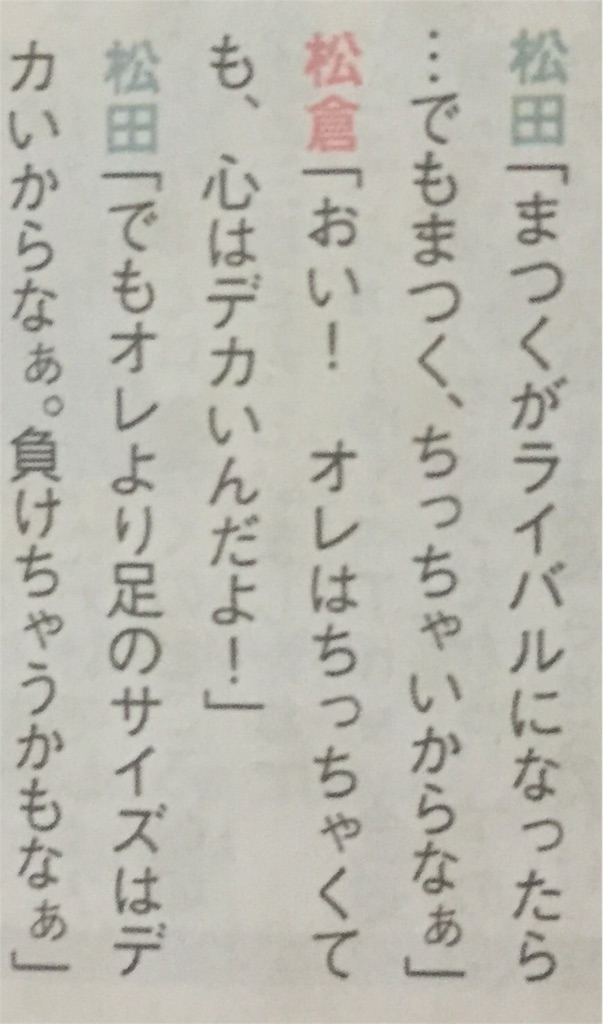 松田「まつくがライバルになったら
…でもまつく、ちっちゃいからなぁ」
松倉「おい！　オレはちっちゃくて
も、心はデカいんだよ！」
松田「でもオレより足のサイズはデ
カいからなぁ。負けちゃうかもなぁ」